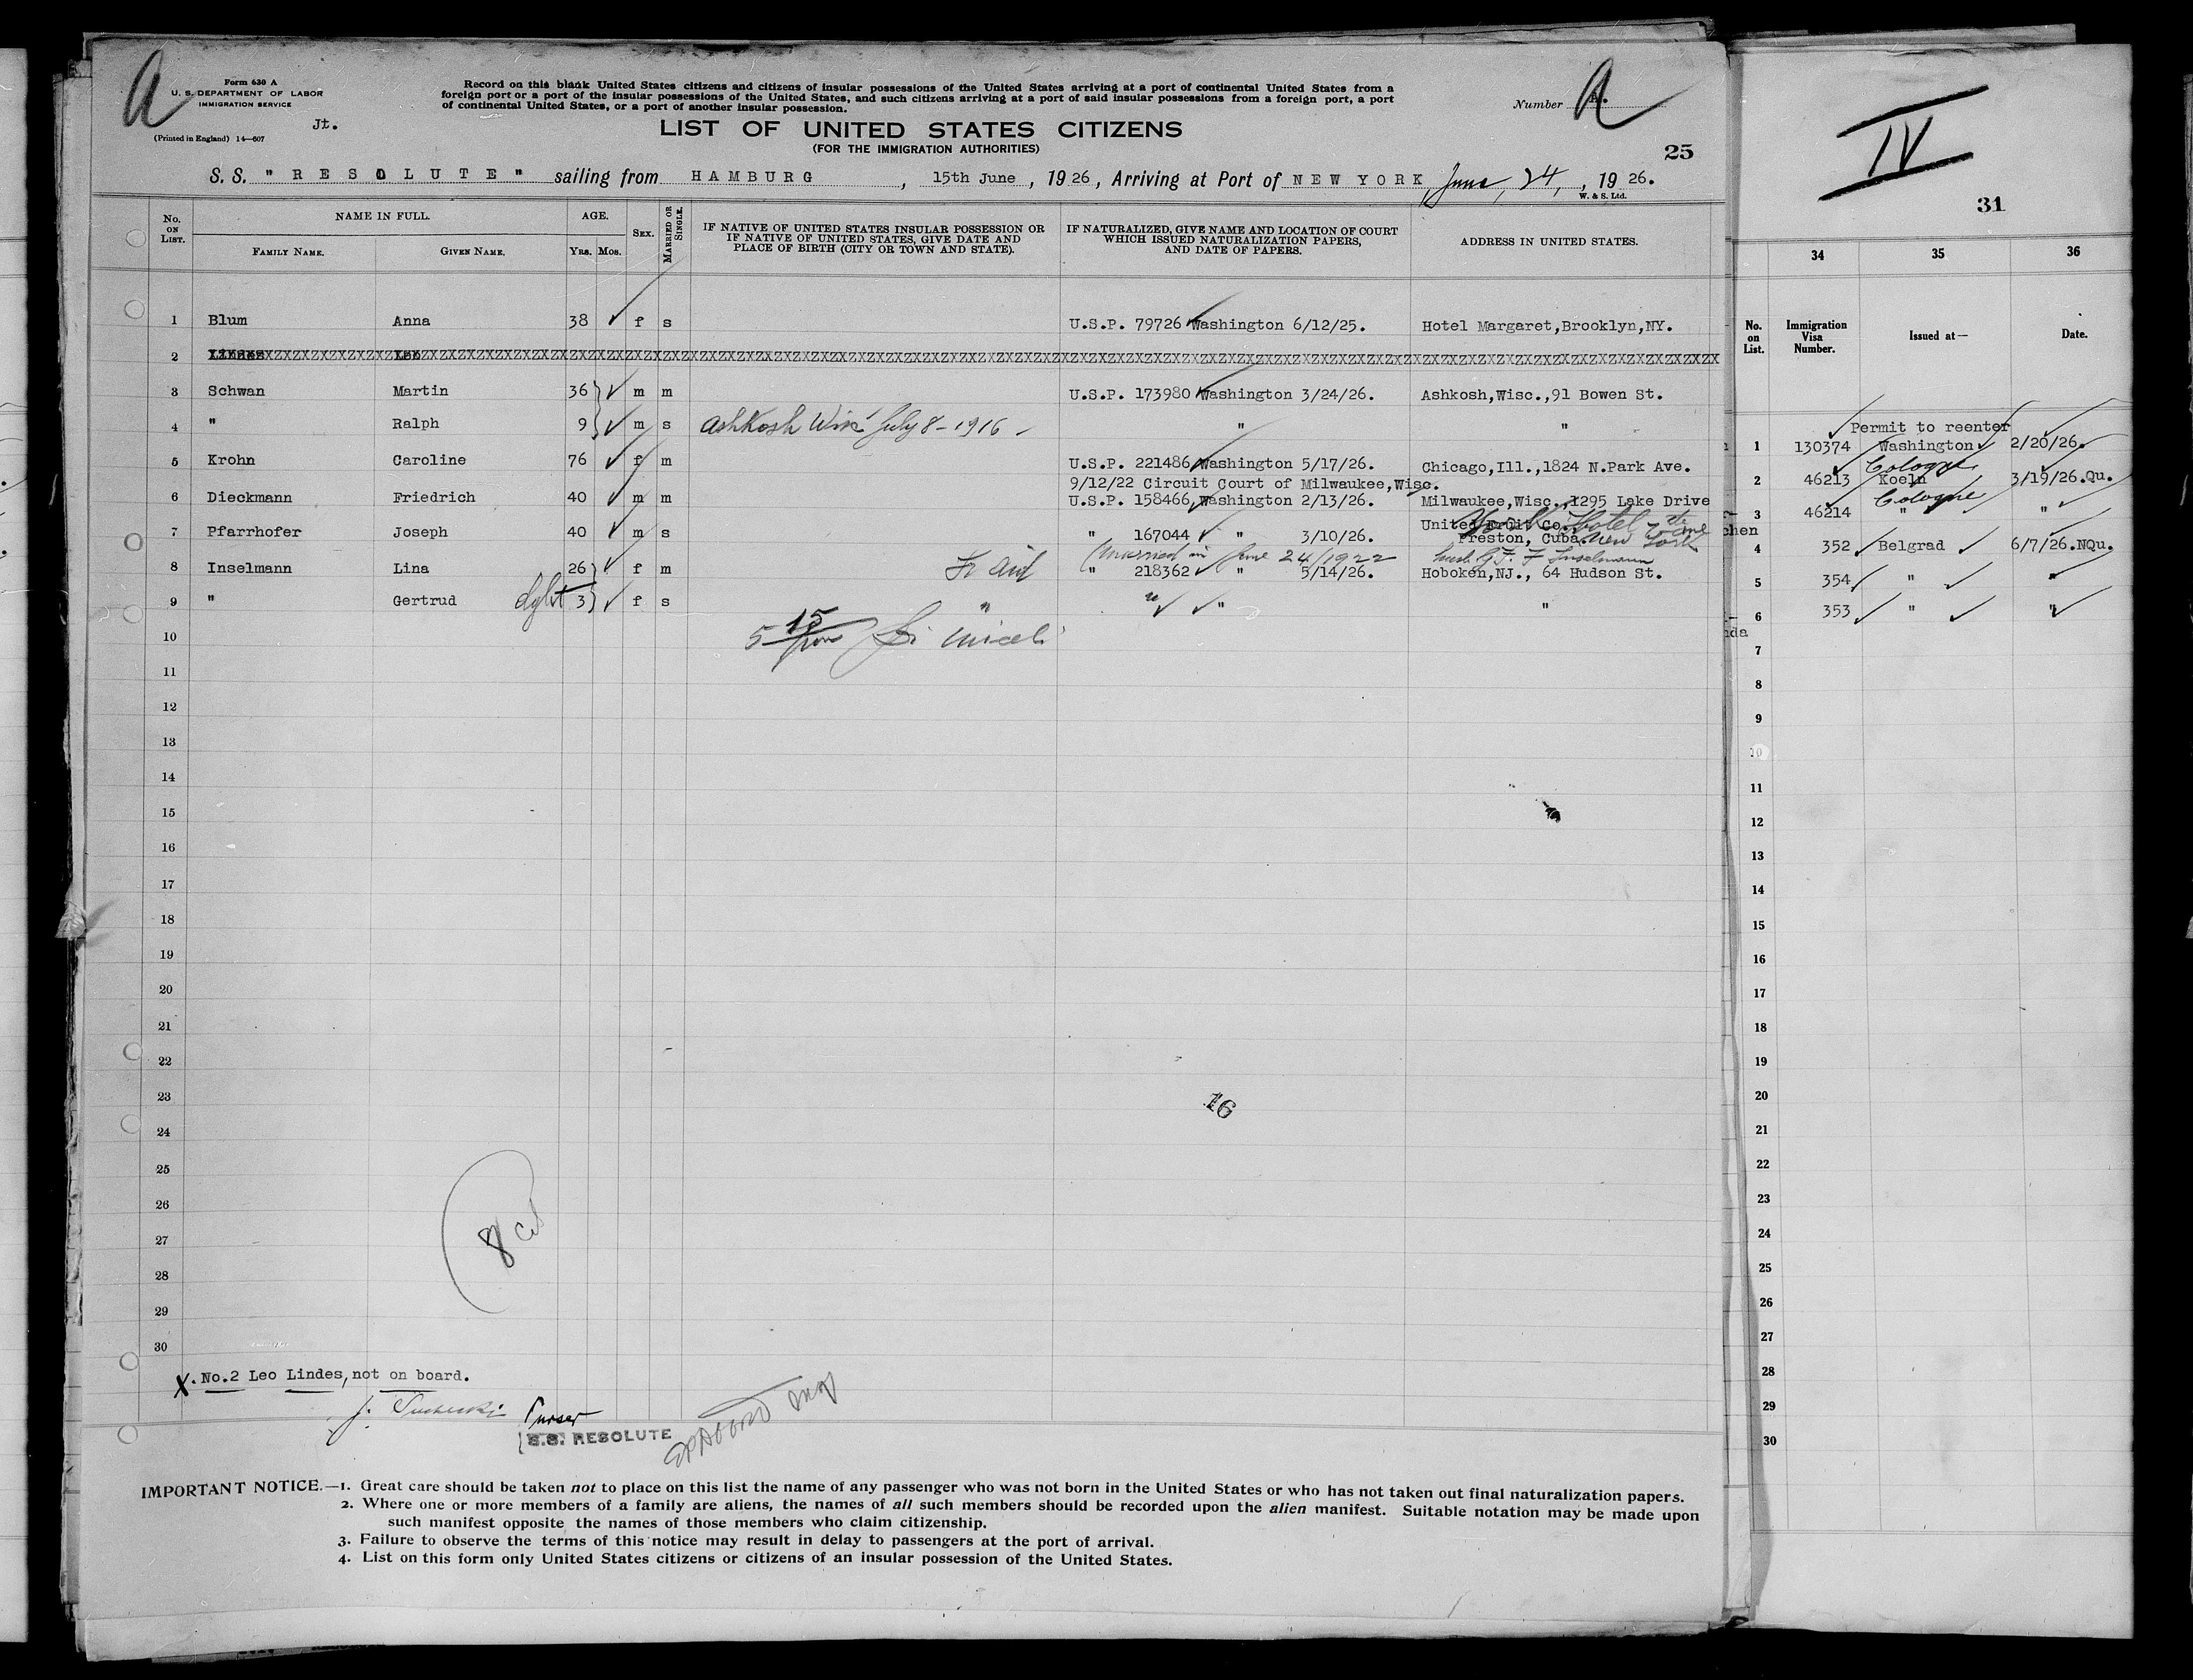 A
Form 630 A
U. S. DEPARTMENT OF LABOR
IMMIGRATION SERVICE
Jt.
(Printed in England) 14—607
Record on this blank United States citizens and citizens of insular possessions of the United States arriving at a port of continental United States from a
foreign port or a port of the insular possessions of the United States, and such citizens arriving at a port of said insular possessions from a foreign port, a port
of continental United States, or a port of another insular possession.
Number A.
A
LIST OF UNITED STATES CITIZENS
(FOR THE IMMIGRATION AUTHORITIES)
25
S. S. " RESOLUTE " sailing from HAMBURG, 15th June, 1926, Arriving at Port of NEW YORK, June, 24, 1926.
W. & S. Ltd.
No. ON LIST. NAME IN FULL. FAMILY NAME. GIVEN NAME. AGE. YRS. MOS. SEX. MARRIED OR SINGLE. IF NATIVE OF UNITED STATES INSULAR POSSESSION OR IF NATIVE OF UNITED STATES, GIVE DATE AND PLACE OF BIRTH (CITY OR TOWN AND STATE). IF NATURALIZED, GIVE NAME AND LOCATION OF COURT WHICH ISSUED NATURALIZATION PAPERS, AND DATE OF PAPERS. ADDRESS IN UNITED STATES.
1 Blum Anna 38 f s U.S.P. 79726 Washington 6/12/25. Hotel Margaret,Brooklyn,NY.
2 Lindes Leo
3 Schwan Martin 36 m m U.S.P. 173980 Washington 3/24/26. Ashkosh,Wisc.,91 Bowen St.
4 " Ralph 9 m s Ashkosh Wis July 8 - 1916 - " "
5 Krohn Caroline 76 f m U.S.P. 221486 Washington 5/17/26. Chicago,Ill.,1824 N.Park Ave.
9/12/22 Circuit Court of Milwaukee,Wisc.
6 Dieckmann Friedrich 40 m m U.S.P. 158466 Washington 2/13/26. Milwaukee,Wisc.,1295 Lake Drive
United Fruit Co. Hotel 7th
7 Pfarrhofer Joseph 40 m s " 167044 " 3/10/26. Preston, Cuba. New York
married in June 24/1922 husb. G. F. F Inselmann
8 Inselmann Lina 26 f m " 218362 " 5/14/26. Hoboken,NJ., 64 Hudson St.
9 " Gertrud 3 f s " " " "
10 5 15
11
12
13
14
15
16
17
18
19
20
21
22
23
16
24
25
26
27 8
28
29
30
X. No.2 Leo Lindes,not on board.
Purser
S.S. RESOLUTE
IMPORTANT NOTICE.—1. Great care should be taken not to place on this list the name of any passenger who was not born in the United States or who has not taken out final naturalization papers.
2. Where one or more members of a family are aliens, the names of all such members should be recorded upon the alien manifest. Suitable notation may be made upon
such manifest opposite the names of those members who claim citizenship.
3. Failure to observe the terms of this notice may result in delay to passengers at the port of arrival.
4. List on this form only United States citizens or citizens of an insular possession of the United States.
IV
31
34 35 36
No. on List. Immigration Visa Number. Issued at— Date.
Permit to reenter
1 130374 Washington 2/20/26.
Cologne
2 46213 Koeln 3/19/26.Qu.
Cologne
3 46214 " "
chen
4 352 Belgrad 6/7/26.NQu.
5 354 " "
6 353 " "
nda
7
8
9
10
11
12
13
14
15
16
17
18
19
20
21
22
23
24
25
26
27
28
29
30